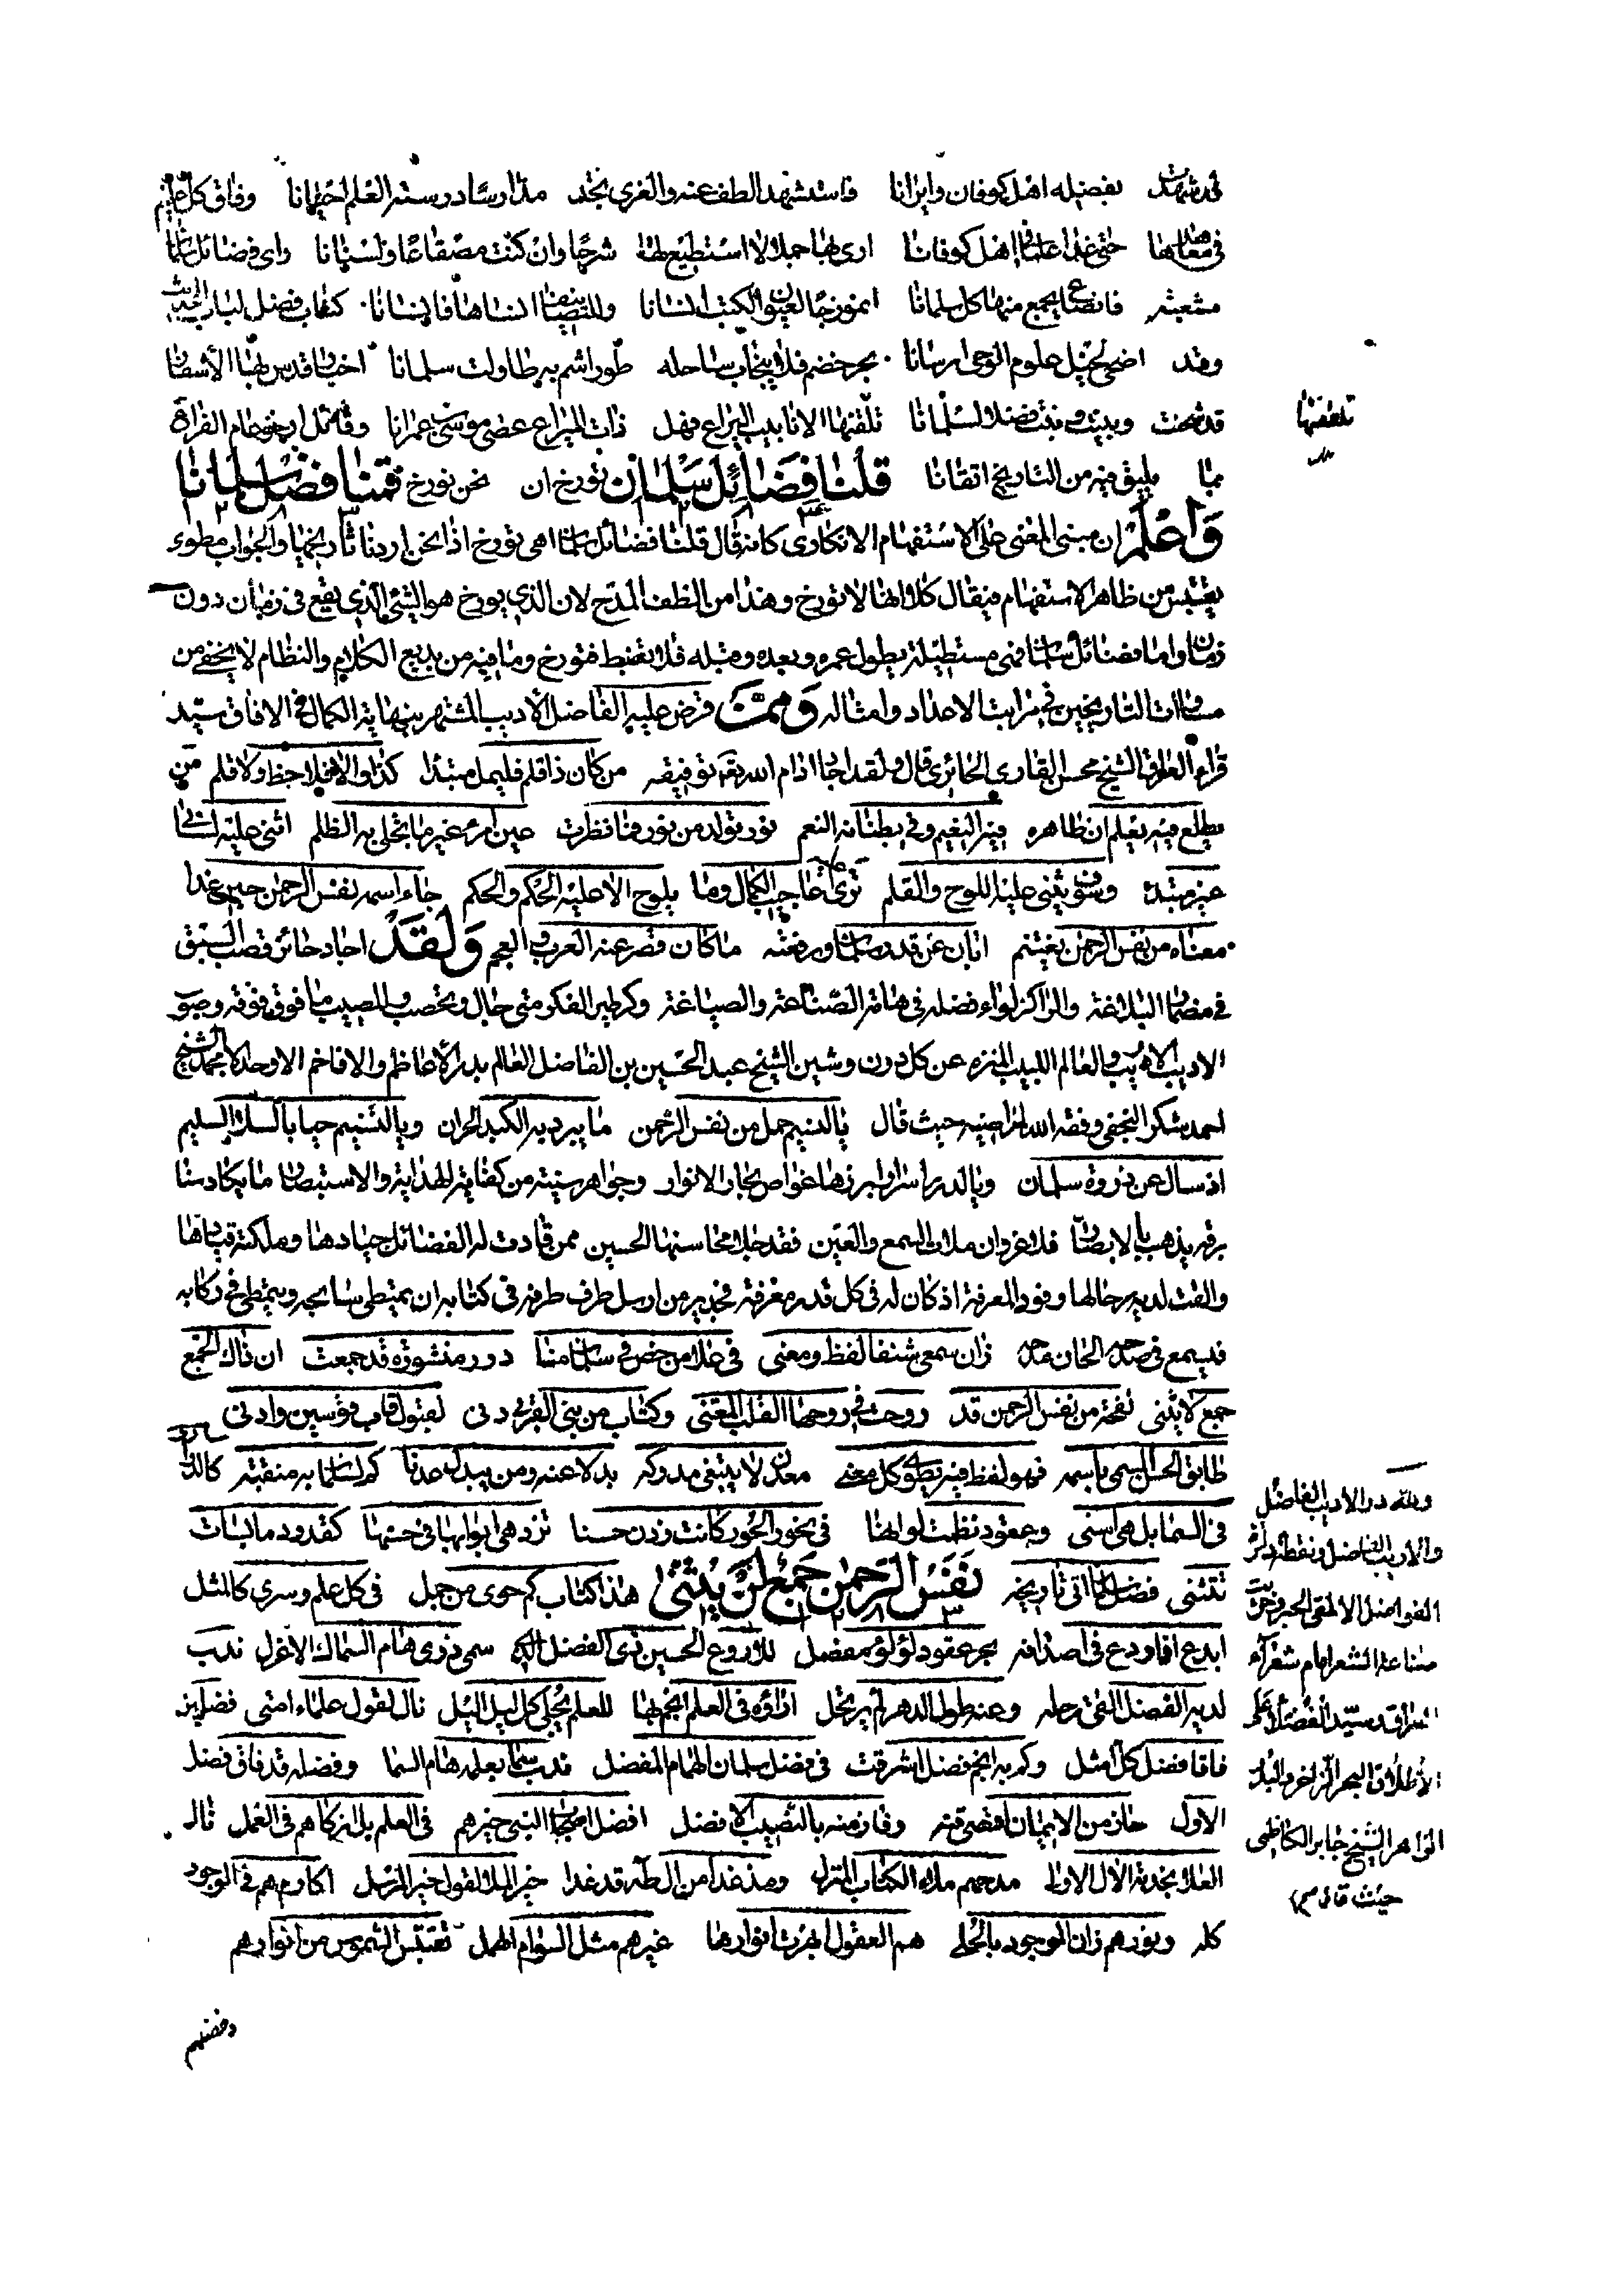 قد شهدت بفضله اهل كوفان وايرانا فاستشهد الطف عنه والغري تجد مدارسًا درست العلم احيانا وفاق كل عليم
في معاهدها حتى غدا علما في اهل كوفانا ارى لها جملا لا استطيع لها شرحًا وان كنت مصقاعًا ولسانا واى فضائل سلمانا
مشعبثه فانصاع يجمع منها كل سلمانا انموزجًا لعيون الكتب انسانا وللتصانيف انساها فانسانا كتاب فضل لباب الحديث
وقد اضحى لجل علوم الوحى مرسانا بحر خضم فلا ينجاب ساحله طور اشم به طاولت سلمانا اخبار قدس بها الأسفار
قد شحنت وبينت وبنت فضلا لسلمانا تلقنها الانابيب اليراع فهل ذات اليراع عصى موسى بن عمرانا وقائل ارخوا عام الفراغ
بما يليق فيه من التاريخ اتقانا قلنا فضائل سلمان نورخ ان نحن نورخ قمنا فضل سلمانا
واعلم ان مبنى المعنى على الاستفهام الانكارى كانه قال قلنا فضائل سلمان اهى نورخ اذا نحن اردنا تاريخها والجواب مطوى
يقتبس من ظاهر الاستفهام فيقال كلا انها لا نورخ وهذا من الطف المدح لان الذي يورخ هو الشئ الذي يقع في زمان دون
زمان واما فضائل سلمان فهى مستطيلة بطول عمره وبعده وقبله فلا تضبط فتورخ وما فيه من بديع الكلام والنظام لا يخفى من
مساوات التاريخين في مراتب الاعداد وامثاله وممن قرض عليه الفاضل الأديب المشتهر بنهاية الكمال في الافاق سيد
قراء العراق الشيخ محسن القارى الحائرى قال ولقد اجاد ادام الله بقه توفيقه من كان ذا قلم فليمل مبتدا كذا والا فلا حظ ولا قلم من
يطلع فيه يعلم ان ظاهره فيه النعيم وفي بطنانه النعم نور تولد من نور فما نظرت عين امرء غير ما تجلى به الظلم اثنى عليه لسانى
غير مبتدء وسوف يثنى عليه اللوح والقلم ترى عاجيب الكمال وما يلوح الا عليه الحكم والحكم جاء اسمه نفس الرحمن حين غدا
معناه من نفس الرحمن يغتنم ابان عن قدر سلمان ورفعته ما كان قصر عنه العرب والعجم ولقد اجاد حائز قصب السبق
في مضمار البلاغة والراكز لواء فضله في هامة الصناعة والصياغة وكر طير الفكر متى جال
الاديب الاريب والعالم اللبيب المنزه عن كل دون وشين الشيخ عبد الحسين بن الفاضل العالم بدر الأعاظم والافاخم الاوحد الامجد الشيخ
احمد شكر النجفى وفقه الله لمراضيه حيث قال يا لنسيم حمل من نفس الرحمن ما يبرد به الكبد الحران ويا لتسنيم حيا بالسلام السليم
اذ سال عن ذروة سلمان ويا لدرر اسرار ابرزها غواص بحار الانوار وجواهر سنية من كفاية الهداية والاستبصار ما يكاد سنا
برقه يذهب بالابصار فلا غروان ملات السمع والعين فقد جلا محاسنها الحسين ممن قادت له الفضائل جيادها وملكته قيادها
والقت لديه رحالها وفود المعرفة اذ كان له في كل قدر مغرفة فجدير من ارسل طرف طرفه في كتابه ان يمتطى سابحه ويمتطى في ركابه
فيسمع في الحان مدحه زان سمعى شنفا لفظ ومعنى في علا من خص في سلمان منا درر منثورة قد جمعت ان ذاك الجمع
جمع لا يثنى نفحة من نفس الرحمن قد روحت في روحها القلب المعنى وكتاب من بنى الفرب دنى لقبول قاب قوسين وادنى
طابق الحسن المسمى باسمه فهو لفظ فيه يطوى كل معنى معدن لا يبتغى مدركه بدلا عنه ومن يبدل عدنا كم لسلمان به منقبة كالدرارى
في السما بل هي اسنى وعقود نظمت لو انها في نحور الحور كانت زدن حسنا تزدهى ابوابها في حسنها كقدود مائسات
تتثنى فضل اتى تاريخه نفس الرحمن جمع لن يثنى هذا كتاب كم حوى من جمل في كل علم وسرى كالمثل
ابدع اذ اودع في اصدافه بحر عقود لؤلؤ مفصل للاروع الحسين ذى الفضل الذى سمى ذرى هام السماك الأعزل ندب
لديه الفضل القى رحله وعنه طول الدهر لم يرتحل اراؤه في العلم انجم بها للعلم يجلى كل ليل اليل نال لقول علماء امتى فضلا به
فاقا فضل كل امثل وكم به انجم فضل اشرقت في فضل سلمان الهمام المفضل ندب سما بعلمه هام السما وفضله قد فاق فضل
الاول حاز من الايمان اقصى قنة وفاز منه بالنصيب الافضل افضل اصحاب النبى خيرهم في العلم بل ازكاهم في العمل نال
العلا بخدمة الال الاولى مدحهم ملاء الكتاب المنزل ومذ غدا من ال طه قد غدا خير الملا لقول خير المرسل اكارم هم في الوجود
كله وبنورهم زان الوجود بالحلى هم العقول ابهرت انوارها غيرهم مثل السوام الهمل تقتبس الشموس من انوارهم
تلقفتها
ولله در الاديب الفاضل
والاريب الفاضل ونقطة دائرة
الفواضل الالمعى الخبير فى خريت
صناعة الشعر امام شعراء
العراق سيد الفضلاء على
الاطلاق البحر الزاخر والبدر
الزاهر الشيخ جابر الكاظمى
حيث قال
وفضلهم